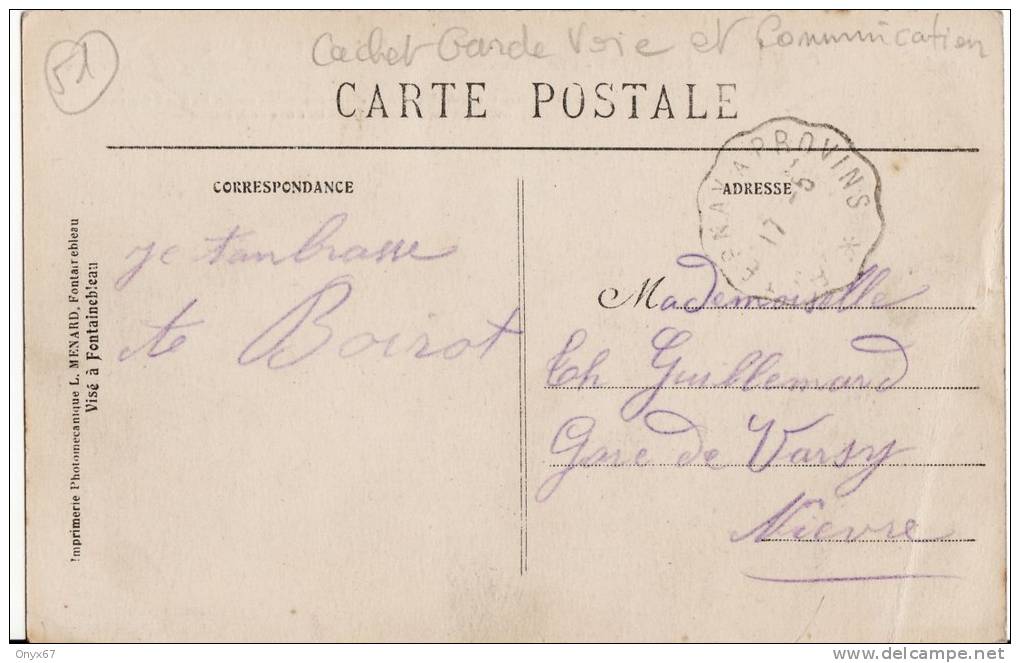 51
Cachet Garde Voie et Communication
CARTE POSTALE
CORRESPONDANCE
ADRESSE
EPERNAY A PROVINS *
17
15
je t'anbrasse
te Boirot
Mademoiselle
Th Guillemard
Gare de Varsy
Nièvre
Imprimerie Photomecanique L. MENARD, Fontainebleau
Visé à Fontainebleau
Onyx67
http://www.delcampe.net